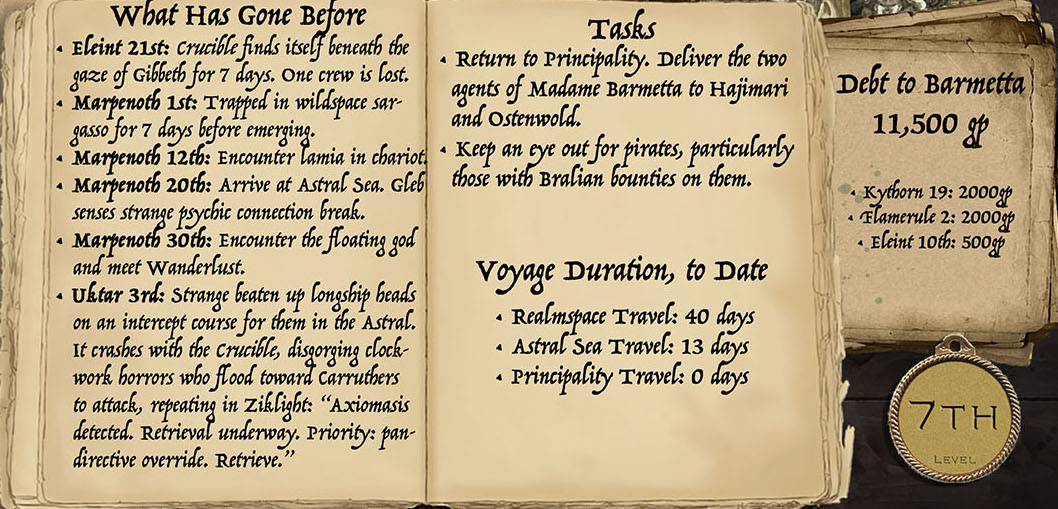 What Has Gone Before
• Eleint 21st: Crucible finds itself beneath the
gaze of Gibbeth for 7 days. One crew is lost.
• Marpenoth 1st: Trapped in wildspace sar-
gasso for 7 days before emerging.
• Marpenoth 12th: Encounter lamia in chariot.
• Marpenoth 20th: Arrive at Astral Sea. Gleb
senses strange psychic connection break.
• Marpenoth 30th: Encounter the floating god
and meet Wanderlust.
• Uktar 3rd: Strange beaten up longship heads
on an intercept course for them in the Astral.
It crashes with the Crucible, disgorging clock-
work horrors who flood toward Carruthers
to attack, repeating in Ziklight: “Axiomasis
detected. Retrieval underway. Priority: pan-
directive override. Retrieve.”
Tasks
• Return to Principality. Deliver the two
agents of Madame Barmetta to Hajimari
and Ostenwold.
• Keep an eye out for pirates, particularly
those with Bralian bounties on them.
Voyage Duration, to Date
• Realmspace Travel: 40 days
• Astral Sea Travel: 13 days
• Principality Travel: 0 days
Debt to Barmetta
11,500 gp
• Kythorn 19: 2000gp
• Flamerule 2: 2000gp
• Eleint 10th: 500gp
7TH
LEVEL